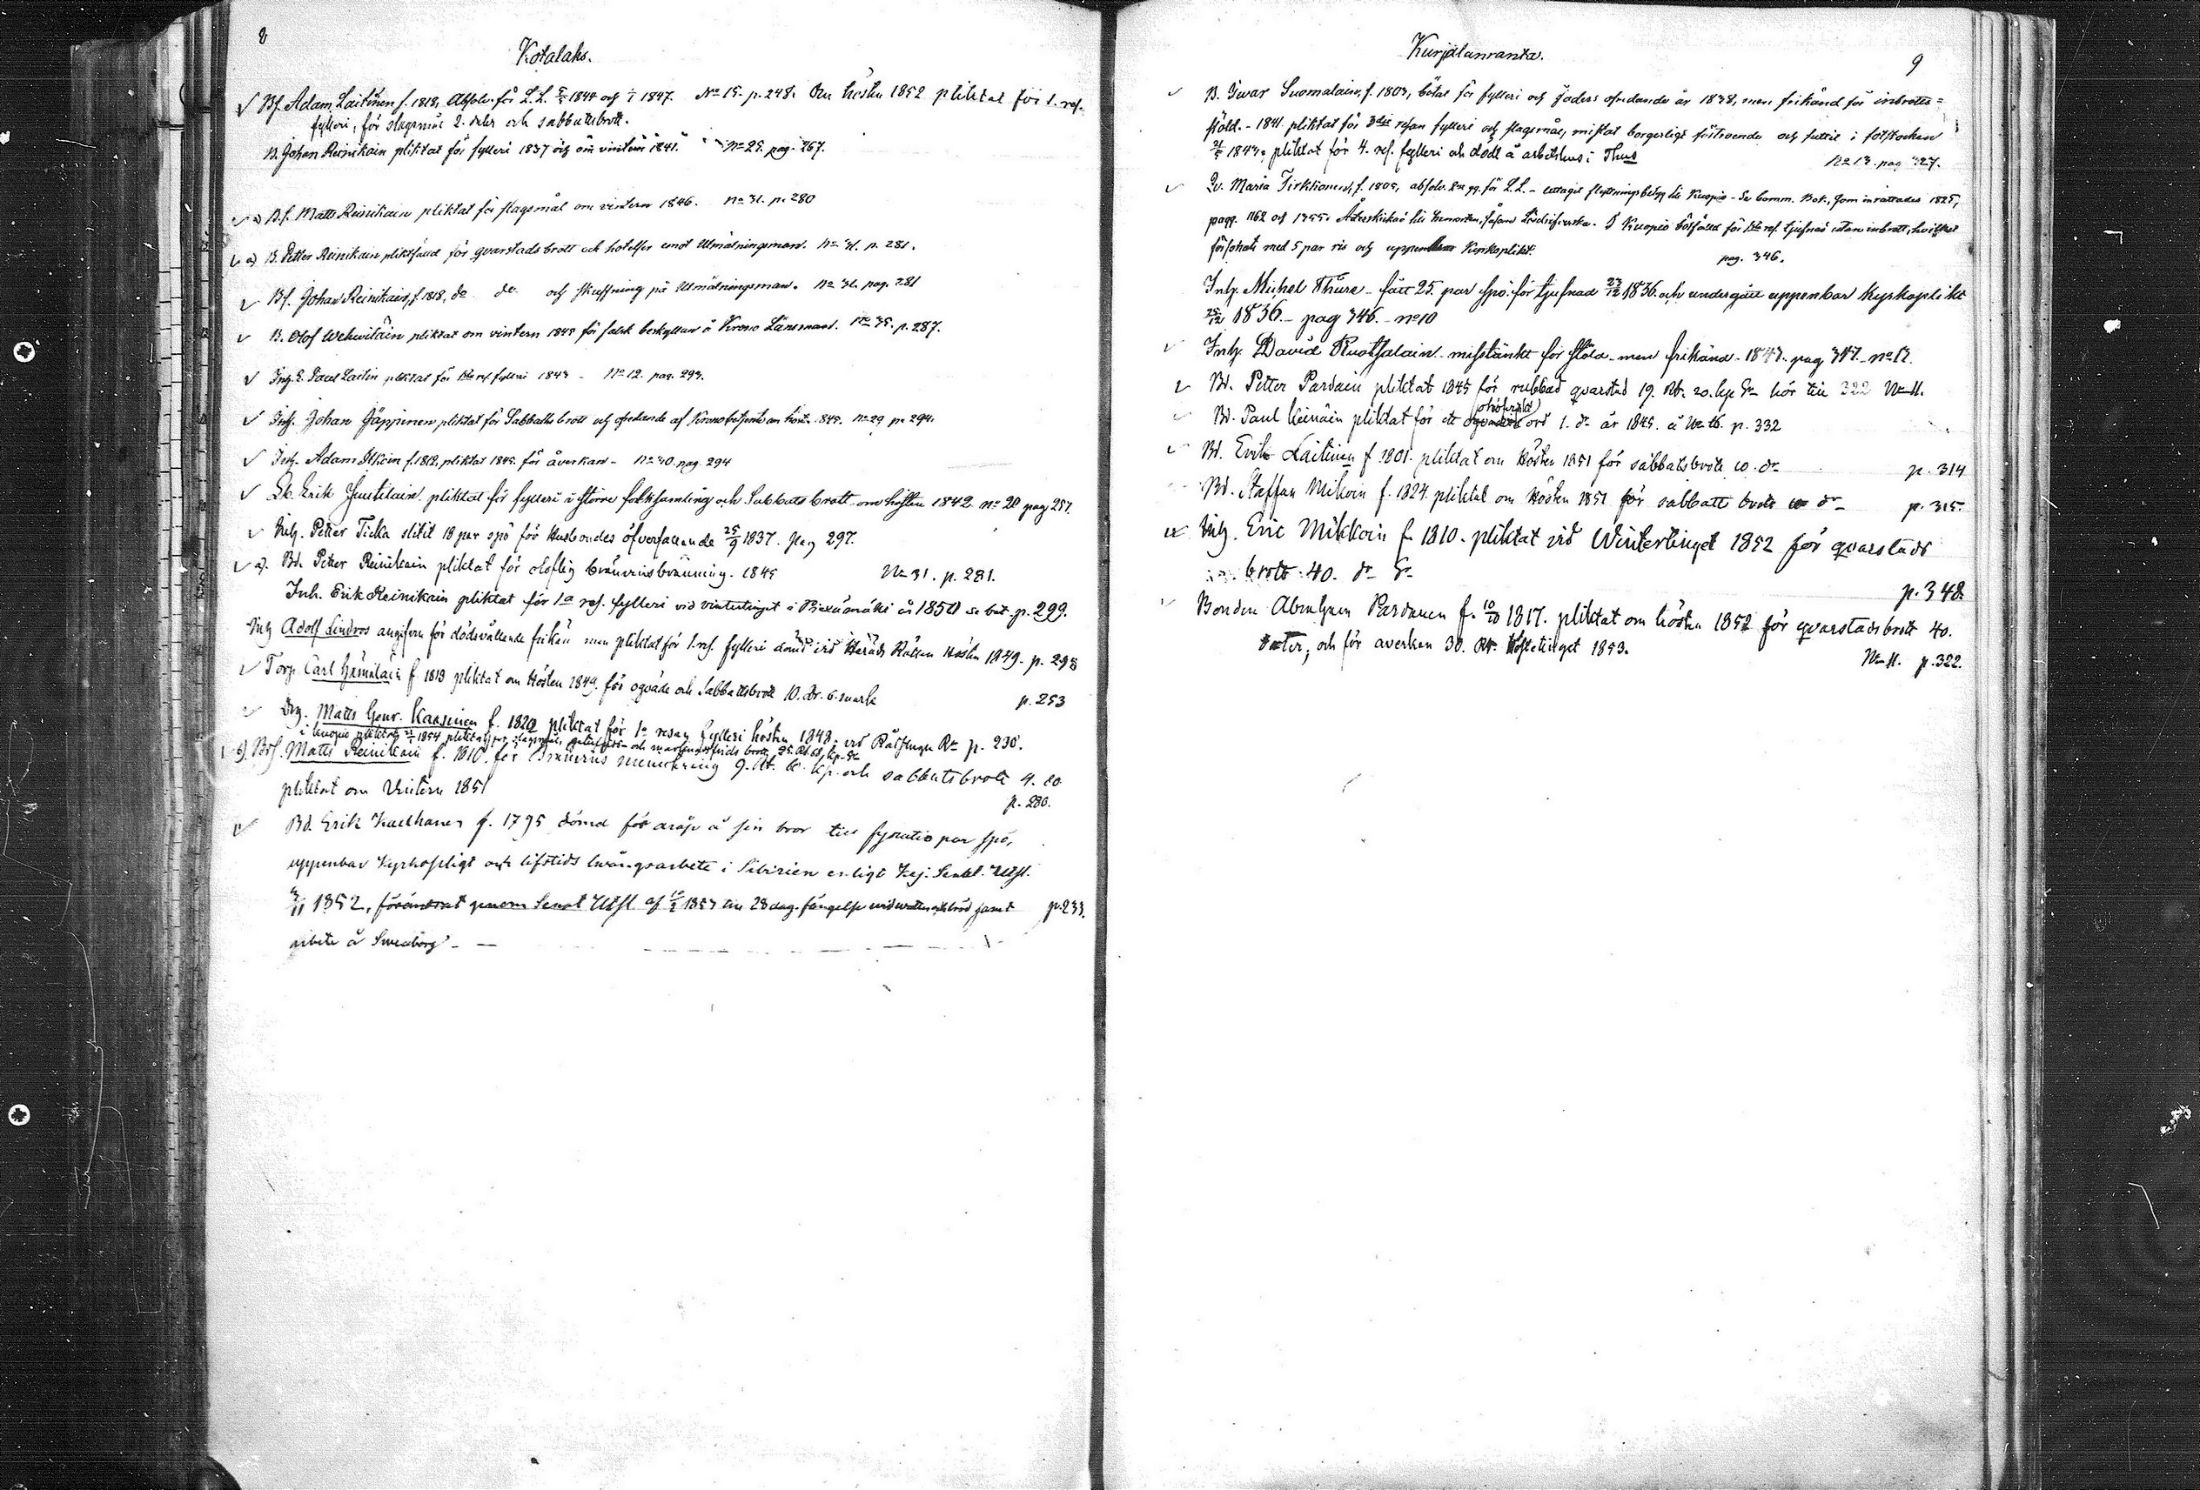 8
Kotalaks.
Bf. Adam Laitinen f. 1818, Absolv. för L. L. 1844 och 1847. No 15. p. 248. Om hösten 1852 pliktat för 1. res.
fylleri, för slagsmål 2. daler och sabbatsbrott.
B. Johan Reinikain pliktat för fylleri 1837 och om vintern 1841. No 25. pag. 267.
a) B.f. Matts Reinikain pliktat för slagsmål om vintern 1846. No 31. p. 280
a) B. Petter Reinikain pliktfäld för qvarstads brott och hotelser emot Utmätningsman. No 31. p. 281.
Bf. Johan Reinikain, f. 1818, do do och skuffning på Utmätningsman. No 31. pag. 281
B. Olof Wehviläin pliktat om vintern 1848 för falsk beskyllan å Krono Länsman. No 35. p. 287.
Inh. E. Paul Laitin pliktat för 1sta res. fylleri 1843 - No 12. pag. 293.
Inh. Johan Jäppinen pliktat för Sabbaths brott och ofredande af Kronobetjent om höst. 1845. No 29 p. 294.
Inh. Adam Ilkoin f. 1812, pliktat 1845. för åverkan - No 30. pag. 294
Lb. Erik Juutilain pliktat för fylleri i större folksamling och Sabbats brott om hösten 1842 No 20 pag 257.
Inh. Petter Ticka slitit 18 par spö för Husbondes öfverfallande 25/9 1837. pag 297.
a). Bd. Petter Reinikain pliktat för oloflig bränvinsbränning. 1845 No 31. p. 281.
Inh. Erik Reinikain pliktat för 1a res. fylleri vid vintertinget i Pieksämäki år 1850 se bet. p. 299.
Inh Adolf Lindros angifven för dödsvållande frikän men pliktat för 1. res. fylleri dömd vid Härads Rätten Hösten 1849. p. 298
Torp. Carl Hämäläin f. 1819 pliktat om Hösten 1849. för oqväde och Sabbatsbrott 10. dr. s. mark p. 253
Drg. Matts Henr. Kaasinen f. 1820 pliktat för 1a resan fylleri hösten 1848. vid Rådstugu Rn p. 230.
i Kuopio pliktat 1854 pliktat för slagsmål, och marknadsfrids brott
Bdf. Matts Reinikain f. 1816. för Bränvins 9. Rb. 60. kp. och sabbatsbrott 4. do
pliktat om Vintern 1851 p. 280.
Bd. Erik Kaukanen f. 1795 dömd för dråp å sin bror till fyratio par spö,
uppenbar Kyrkopligt och lifstids tvångsarbete i Sibirien enligt Kej. Senat. Utsl.
1852, förändrat genom Senat Utsl af 1853 till 28 dag. fängelse vid vatten och bröd samt p. 233.
arbete å Sveaborg -
9
Kurjalanranta.
B. Ivar Suomalain, f. 1803, bötat för fylleri och Jöders ofredande år 1838, men frikänd för inbrotts=
stöld. - 1841. pliktat för 3dje resan fylleri och slagsmål, mistat borgerligt förtroende och suttit i fotstocken
1843. pliktat för 4. res. fylleri och dödt å arbetshus i Thus No 13. pag. 327.
Qv. Maria Tirkkonen, f. 1805, absolv. 2 gg. för L.L. - uttagit flyttningsbetyg till Kuopio - se Comm. Bok, som inrättades 1825,
pagg. 1162 och 1355. Återskickad till hemorten, såsom Lösdrifverska. I Kuopio sakfäld för 1sta res. tjufnad utan inbrott, hvilket
försonats med 5 par ris och uppenbar Kyrkoplikt. pag. 346.
Inh. Michel Thure - fått 25 par spö för tjufnad 23/12 1836. och undergått uppenbar kyrkoplikt
25/12 1836. - pag 346. - No 10
Inh. David Ruotsalain misstänkt för stöld - men frikänd - 1843. pag 347. No 12.
Bd. Petter Pardain pliktat 1845 för rubbad qvarstad 19. Rb. 20. kp. Sr hör till 322 No 11.
Bd. Paul Heinäin pliktat för ett ohöfviskt ord 1. dr år 1845. å No 16. p. 332
Bd. Erik Laitinen f 1801. pliktat om Hösten 1851 för sabbatsbrott 10. dr p. 314
Bd. Staffan Mikoin f. 1824. pliktat om Hösten 1851 för sabbatt brott dr p. 315.
Inh. Eric Mikkoin f. 1810. pliktat vid Wintertinget 1852 för qvarstads
brott 40. dr Sr p. 348.
Bonden Abraham Pardanen f. 10/10 1817. pliktat om hösten 1852 för qvarstads brott 40.
daler, och för averkan 30. Rb. Hösttinget 1853. No 11. p. 322.